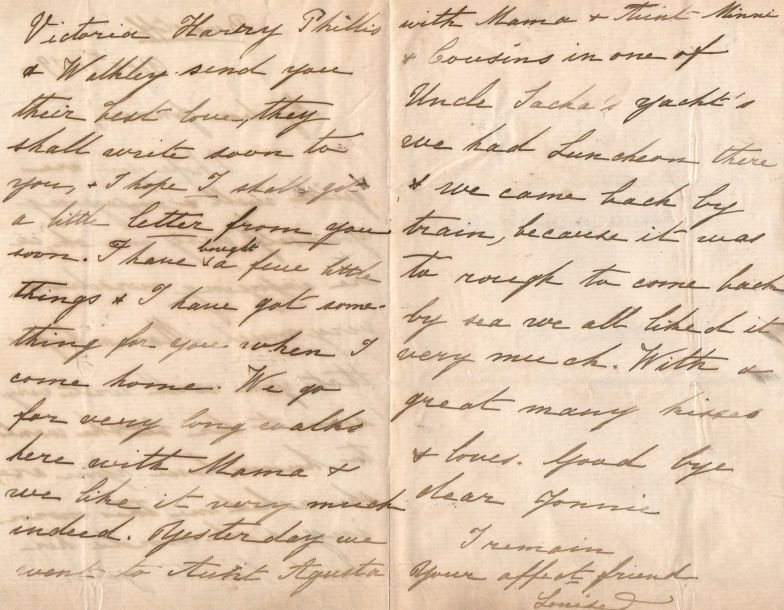 Victoria Harry Phillis
& Walkley send you
their best love, they
shall write soon to
you, & I hope I shall got
a little letter from you
soon. I have bought a few little
things & I have got some-
thing for you when I
come home. We go
for very long walks
here with Mama &
we like it very much
indeed. Yesterday we
went to Aunt Agusta
with Mama & Aunt Minni
& Cousins in one of
Uncle Sacha's yacht's
we had Luncheon there
& we came back by
train, because it was
to rough to come back
by sea we all liked it
very much. With a
great many kisses
& loves. Good bye
dear Tonnie
I remain
Your affect friend
Louise